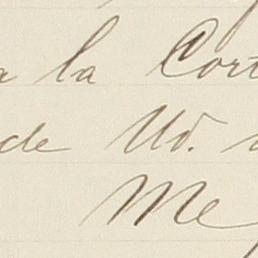 a la Cort
de Ud.
Me